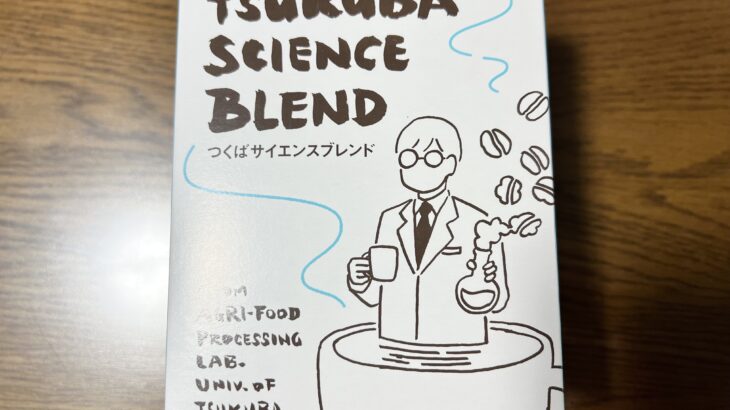 TSUKUBA
SCIENCE
BLEND
つくばサイエンスブレンド
AGRI-FOOD
PROCESSING
LAB.
UNIV. OF
TSUKUBA